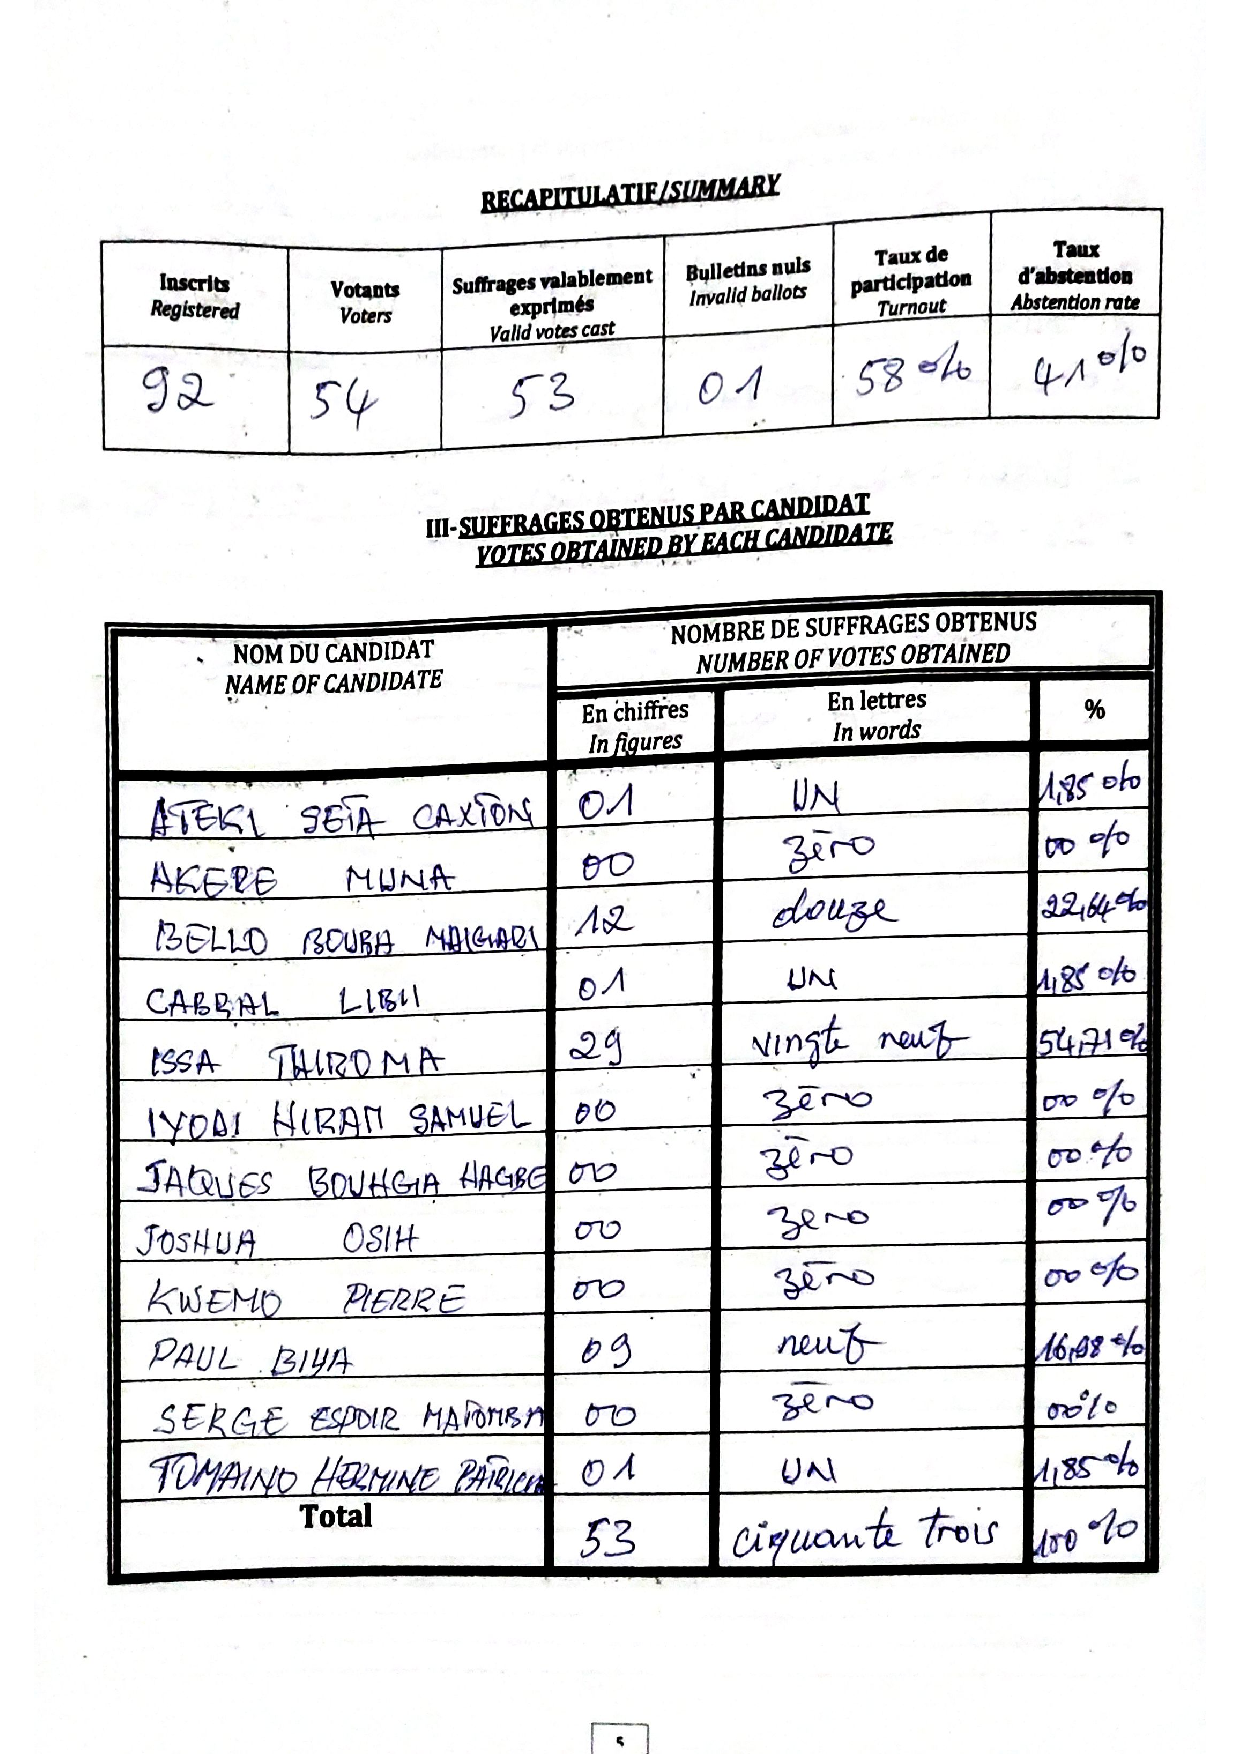 RECAPITULATIF/SUMMARY
Inscrits
Registered
Votants
Voters
Suffrages valablement
exprimés
Valid votes cast
Bulletins nuls
Invalid ballots
Taux de
participation
Turnout
Taux
d'abstention
Abstention rate
92 54 53 01 58 % 41 %
III-SUFFRAGES OBTENUS PAR CANDIDAT
VOTES OBTAINED BY EACH CANDIDATE
NOM DU CANDIDAT
NAME OF CANDIDATE
NOMBRE DE SUFFRAGES OBTENUS
NUMBER OF VOTES OBTAINED
En chiffres
In figures
En lettres
In words
%
ATEKI SETA CAXTON 01 UN 1,85 %
AKERE MUNA 00 zéro 00 %
BELLO BOUBA MAIGARI 12 douze 22,64 %
CABRAL LIBII 01 UN 1,85 %
ISSA THIROMA 29 vingte neuf 54,71 %
IYODI HIRAM SAMUEL 00 zéro 00 %
JAQUES BOUHGIA HAGBE 00 zéro 00 %
JOSHUA OSIH 00 zero 00 %
KWEMO PIERRE 00 zéro 00 %
PAUL BIYA 09 neuf 16,98 %
SERGE ESPOIR MATOMBA 00 zéro 00 %
TOMAINO HERMINE PATRICIA 01 UN 1,85 %
Total 53 ciquante trois 100 %
5